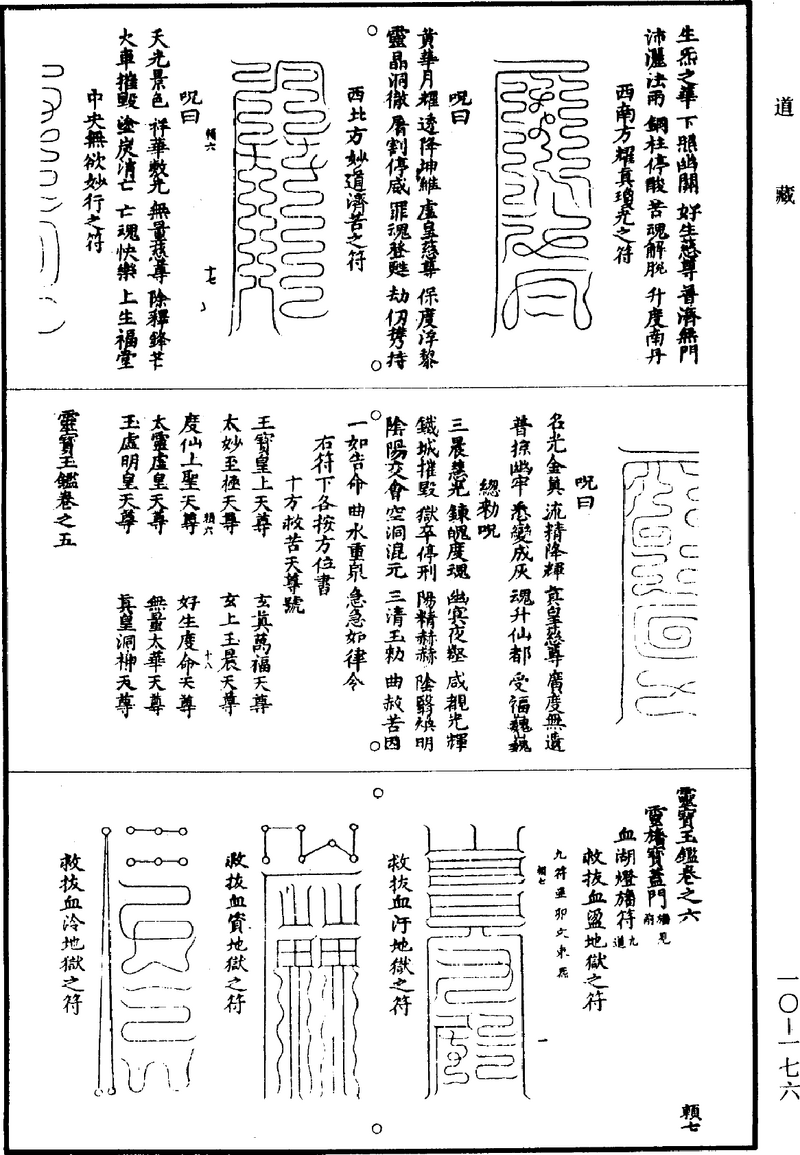 道藏
生炁之華 下照幽關 好生慈尊 普濟無門
沛灑法雨 銅柱停酸 苦魂解脫 升度南丹
西南方耀真瓊光之符
呪曰
黃華月耀 透降坤維 虛皇慈尊 保度浮黎
靈晶洞徹 屠割停威 罪魂登甦 劫仞携持
西北方妙道濟苦之符
呪曰
天光景色 祥華敷光 無量慈尊 除釋鋒芒
火車摧毀 塗炭消亡 亡魂快樂 上生福堂
中央無欲妙行之符
頼六
十七
呪曰
名光金真 流精降輝 真皇慈尊 廣度無遺
普掠幽牢 悉變成灰 魂升仙都 受福巍巍
總勑呪
三晨慧光 鍊魄度魂 幽冥夜壑 咸覩光輝
鐵城摧毀 獄卒停刑 陽精赫赫 陰翳煥明
陰陽交會 空洞混元 三清玉勑 曲赦苦因
一如告命 曲水重泉 急急如律令
右符下各按方位書
十方救苦天尊號
玉寶皇上天尊 玄真萬福天尊
太妙至極天尊 玄上玉晨天尊
度仙上聖天尊 好生度命天尊
太靈虛皇天尊 無量太華天尊
玉虛明皇天尊 真皇洞神天尊
頼六
十八
靈寶玉鑑卷之五
靈寶玉鑑卷之六
頼七
靈旛寶蓋門
血湖燈旛符 九道
救拔血盪地獄之符
頼七
一
救拔血汙地獄之符
救拔血資地獄之符
救拔血冷地獄之符
一〇—一七六